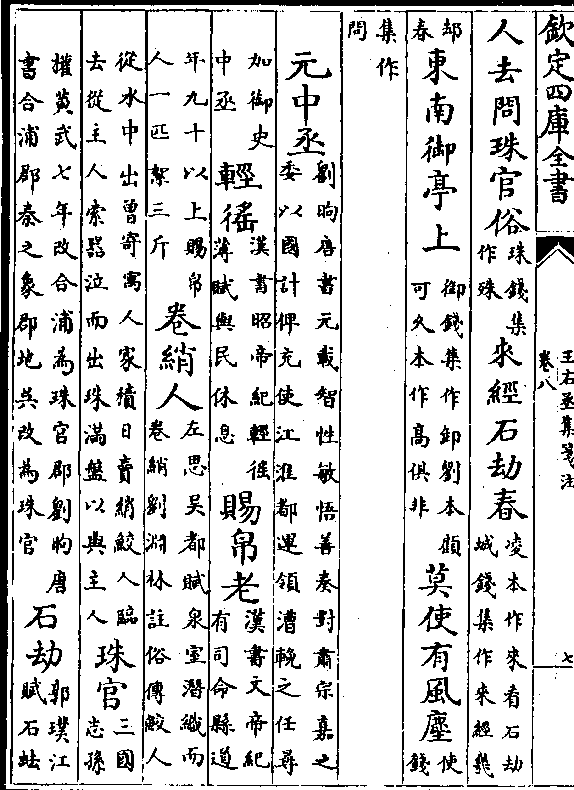 欽定四庫全書
王右丞集箋注
卷八
七
人去問珠官俗
珠錢集
作殊
來經石劫春
凌本作來看石劫
城錢集作來經幾
却
春
東南御亭上
御錢集作卸劉本顧
可久本作高俱非
莫使有風塵
使
錢
集作
問
元中丞
劉昫唐書元載智性敏悟善奏對肅宗嘉之
委以國計俾充使江淮都運領漕輓之任尋
加御史
中丞
輕徭
漢書昭帝紀輕徭
薄賦與民休息
賜帛老
漢書文帝紀
有司令縣道
年九十以上賜帛
人一匹絮三斤
卷綃人
左思吳都賦泉室潛織而
卷綃劉淵林註俗傳鮫人
從水中出曾寄寓人家績日賣綃鮫人臨
去從主人索器泣而出珠滿盤以與主人
珠官
三國
志孫
權黃武七年改合浦為珠官郡劉昫唐
書合浦郡秦之象郡地吳改為珠官
石劫
郭璞江
賦石